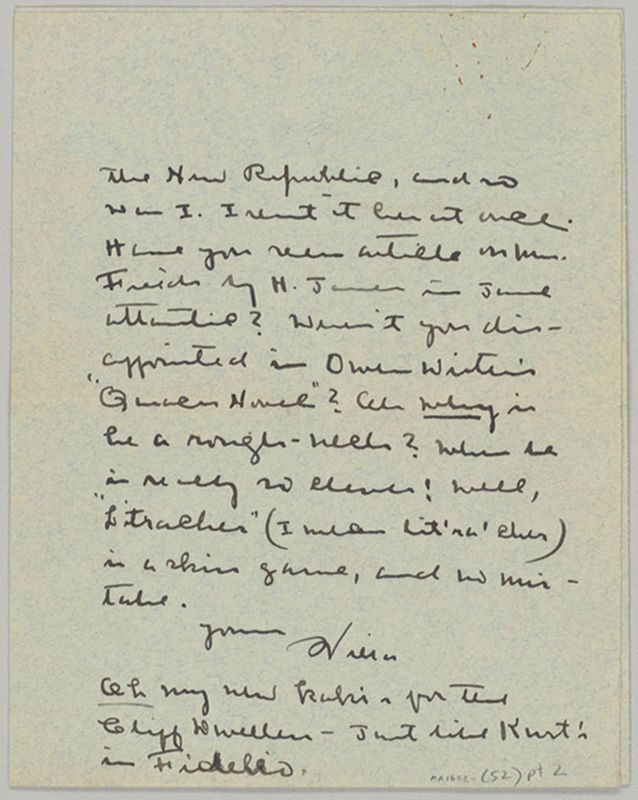 the New Republic, and so
was I. I sent it her at once.
Have you seen article on Mrs.
Fields by H. James in June
Atlantic? Weren't you dis-
appointed in Owen Wister's
"Quack Novel"? Oh why is
he a rough-neck? When he
is really so clever! Well,
"Litracher" (I mean lit'ra'cher)
is a skin game, and no mis-
take.
Yours
Willa
Oh my new kakis for the
Cliff Dwellers - Just like Kurt's
in Fidelio.
MA1602-(52) pt 2